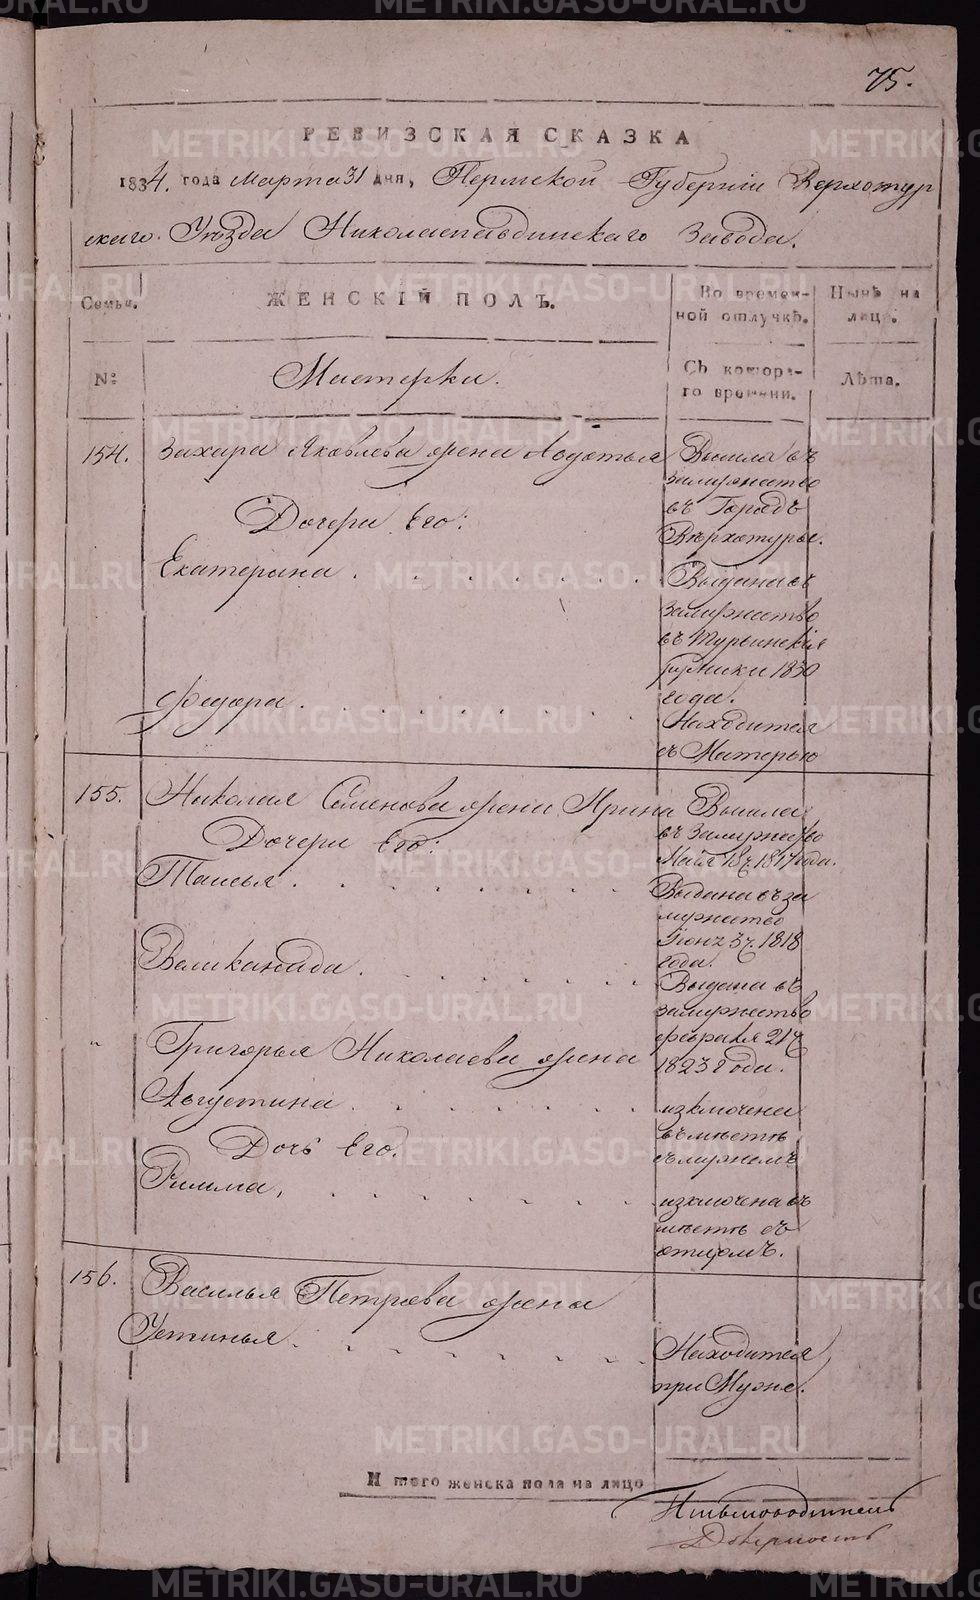 75.
РЕВИЗСКАЯ СКАЗКА
1834. года Марта 31 дня, Пермской Губерніи Верхотур
скаго. Уѣзда Николаепавдинскаго Завода.
Семьи. ЖЕНСКІЙ ПОЛЪ. Во времен- Нынѣ на
ной отлучкѣ. лицѣ.
№ Мастерки. Съ которо- Лѣта.
го времени.
154. Захара Яковлева жена Авдотья Вышла въ
замужество
въ Городъ
Дочери Его: Верхотурье.
Екатерина . . . . . . . Выдана въ
замужество
въ Турьинскія
рудники 1830
года.
Федора . . . . . . . Находится
съ Матерью
155. Николая Семенова жена Ирина Вышла
Дочери Его: въ замужство
Мая 13 ч. 1817 года.
Таисья . . . . . . . Выдана въ за
мужество
Іюня 3 ч. 1818
года.
Великанида . . . . . . . Выдана въ
замужество
февраля 21 ч
Григорья Николаева жена 1823 года.
Августина . . . . . . . изключена
въместѣ
Дочь Его. съ мужемъ
Римма, . . . . . . . изключена въ
местѣ съ
отцомъ.
156. Василья Петрова жена
Устинья . . . . . . . Находится
при Мужѣ.
И того женска пола на лицо
METRIKI.GASO-URAL.RU